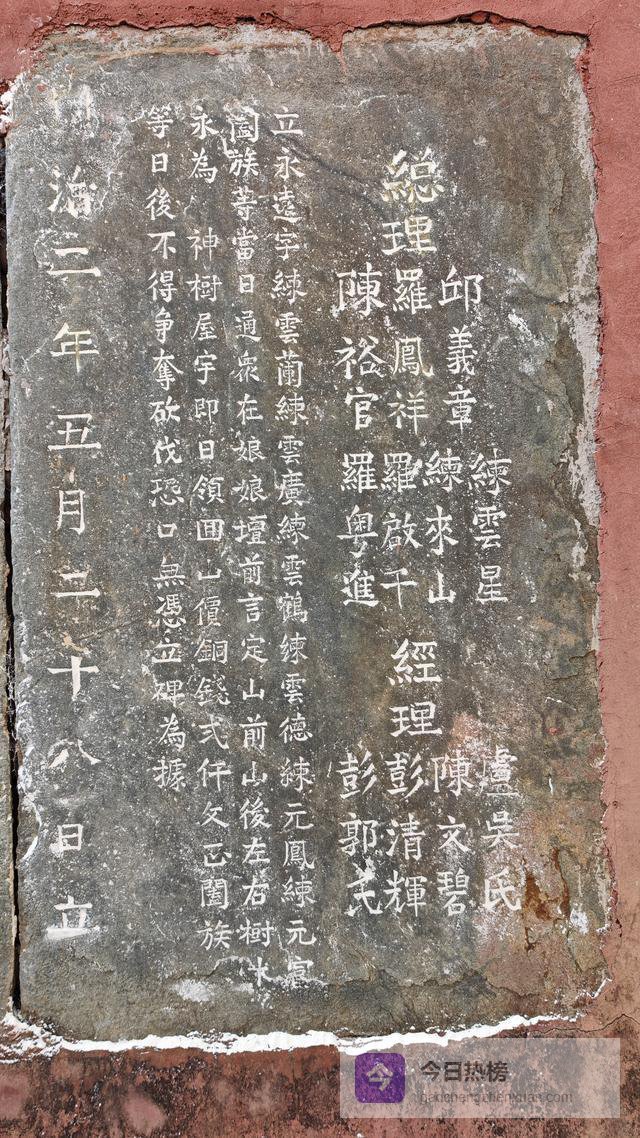 練雲星 盧吳氏
邱義章 練來山 陳文碧
総理 羅鳳祥 羅啟干 經理 彭清輝
陳裕官 羅粤進 彭郭氏
立永遠字練雲蘭練雲廣練雲鶴練雲德練元鳳練元富
闔族等當日通衆在娘娘壇前言定山前山後左右樹木
永為 神樹屋宇即日領囬山價銅錢弍仟文正闔族
等日後不得争奪砍伐恐口無憑立碑為據
同治二年五月二十八日立
今日热榜